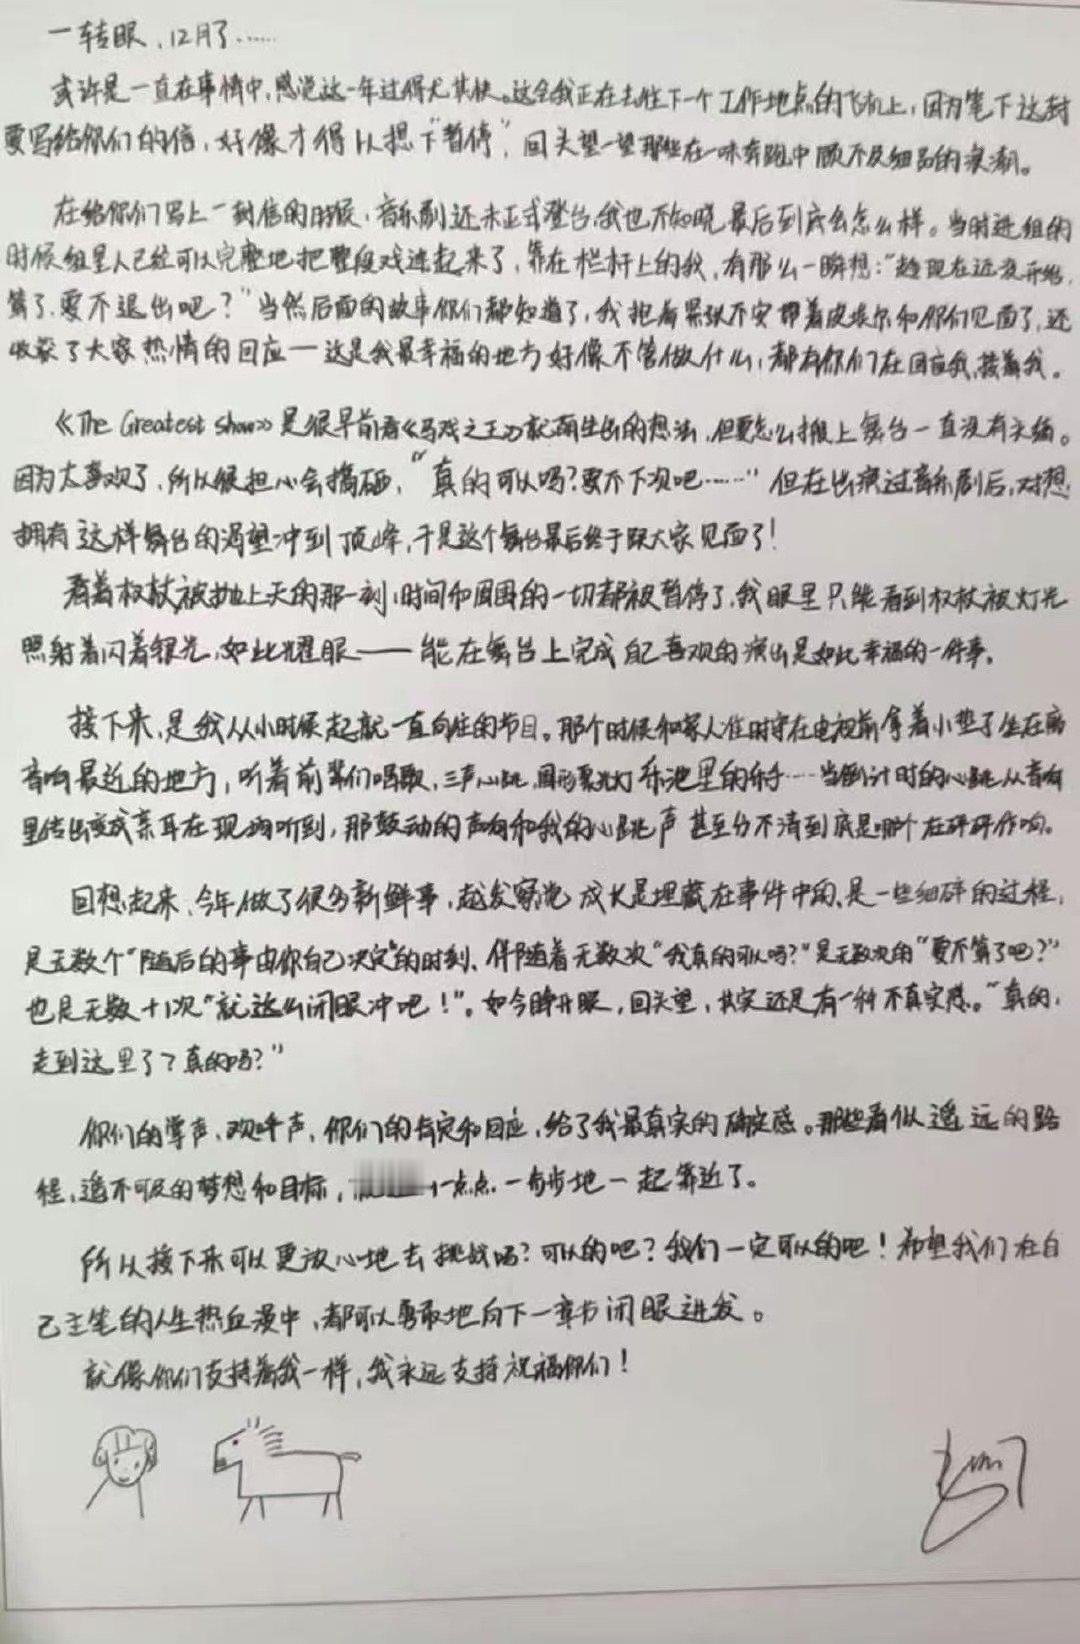 一转眼，12月了……
或许是一直在事情中，感觉这一年过得尤其快。这会我正在去往下一个工作地点的飞机上，因为笔下这封
要写给你们的信，好像才得以想下"暂停"，回头望一望那些在一味奔跑中顾不及细品的浪潮。
在给你们写上一封信的时候，音乐剧还未正式登台，我也不知晓最后到底会怎么样。当时进组的
时候组里人已经可以完整地把整段戏连起来了，靠在栏杆上的我，有那么一瞬想："趁现在还没开始，
算了，要不退出吧？"当然后面的故事你们都知道了，我抱着紧张不安带着皮埃尔和你们见面了，还
收获了大家热情的回应——这是我最幸福的地方好像不管做什么，都有你们在回应我，接着我。
《The Greatest show》是很早前看《马戏之王》就萌生出的想法，但要怎么搬上舞台一直没有头绪。
因为太喜欢了，所以很担心会搞砸，"真的可以吗？要不下次吧……"但在出演过音乐剧后，对想
拥有这样舞台的渴望冲到顶峰，于是这个舞台最后终于跟大家见面了！
看着权杖被抛上天的那一刻，时间和周围的一切都被暂停了，我眼里只能看到权杖被灯光
照射着闪着银光，如此耀眼——能在舞台上完成自己喜欢的演出是如此幸福的一件事。
接下来，是我从小时候起就一直向往的节目。那个时候和家人准时守在电视前拿着小垫子坐在离
音响最近的地方，听着前辈们唱歌，三声心跳，圆形聚光灯 乐池里的乐手……当倒计时的心跳从音响
里传出变成亲耳在现场听到，那鼓动的声响和我的心跳声 甚至分不清到底是哪个在砰砰作响。
回想起来，今年做了很多新鲜事，越发察觉 成长是埋藏在事件中的，是一些细碎的过程，
是无数个"随后的事由你自己决定"的时刻、伴随着无数次"我真的可以吗？"是无数次的"要不算了吧？"
也是无数+1次"就这么闭眼冲吧！"。如今睁开眼，回头望，其实还是有一种不真实感。"真的，
走到这里了？真的吗？"
你们的掌声，欢呼声，你们的肯定和回应，给了我最真实的确定感。那些看似遥远的路
程，遥不可及的梦想和目标，一点点，一步步地一起靠近了。
所以接下来可以更放心地去挑战吗？可以的吧？我们一定可以的吧！希望我们在自
己主笔的人生热血漫中，都可以勇敢地向下一章节闭眼进发。
就像你们支持着我一样，我永远支持祝福你们！